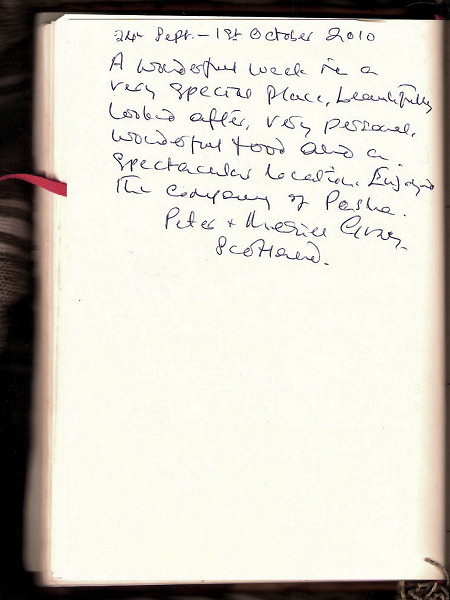 24th Sept. - 1st October 2010
A wonderful week in a
very special place, beautifully
looked after, very personal,
wonderful food and a
spectacular location. Enjoyed
the company of Pasha.
Peter +
Scotland.